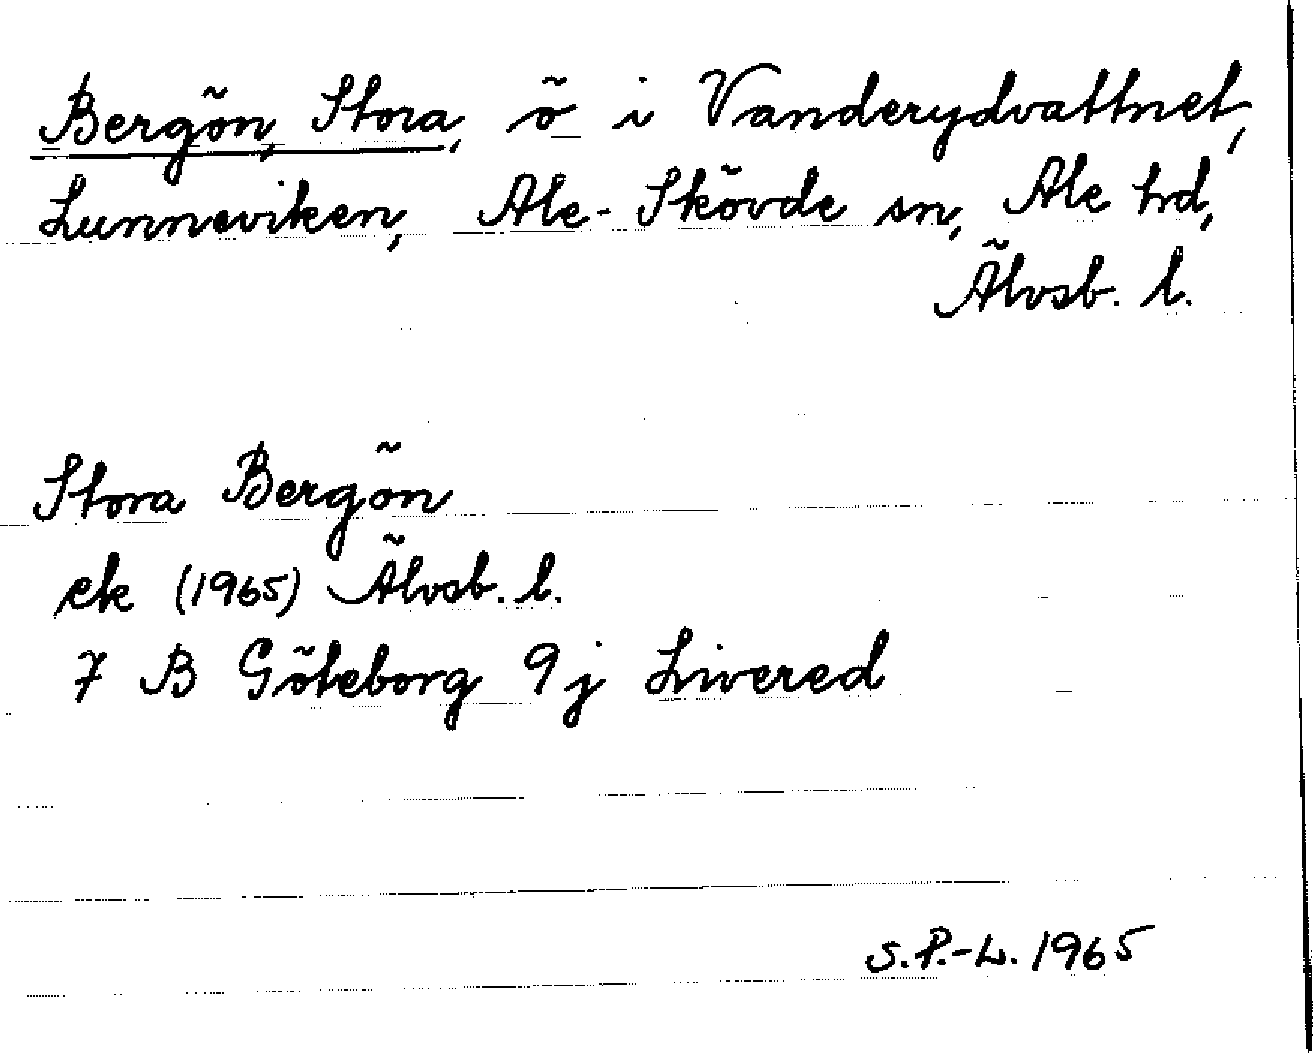 Bergön, Stora, ö i Vanderydvattnet,
Lunneviken, Ale-Skövde sn, Ale hd,
Älvsb. l.
Stora Bergön
ek (1965) Älvsb. l.
7 B Göteborg 9j Livered
S.P.-L. 1965